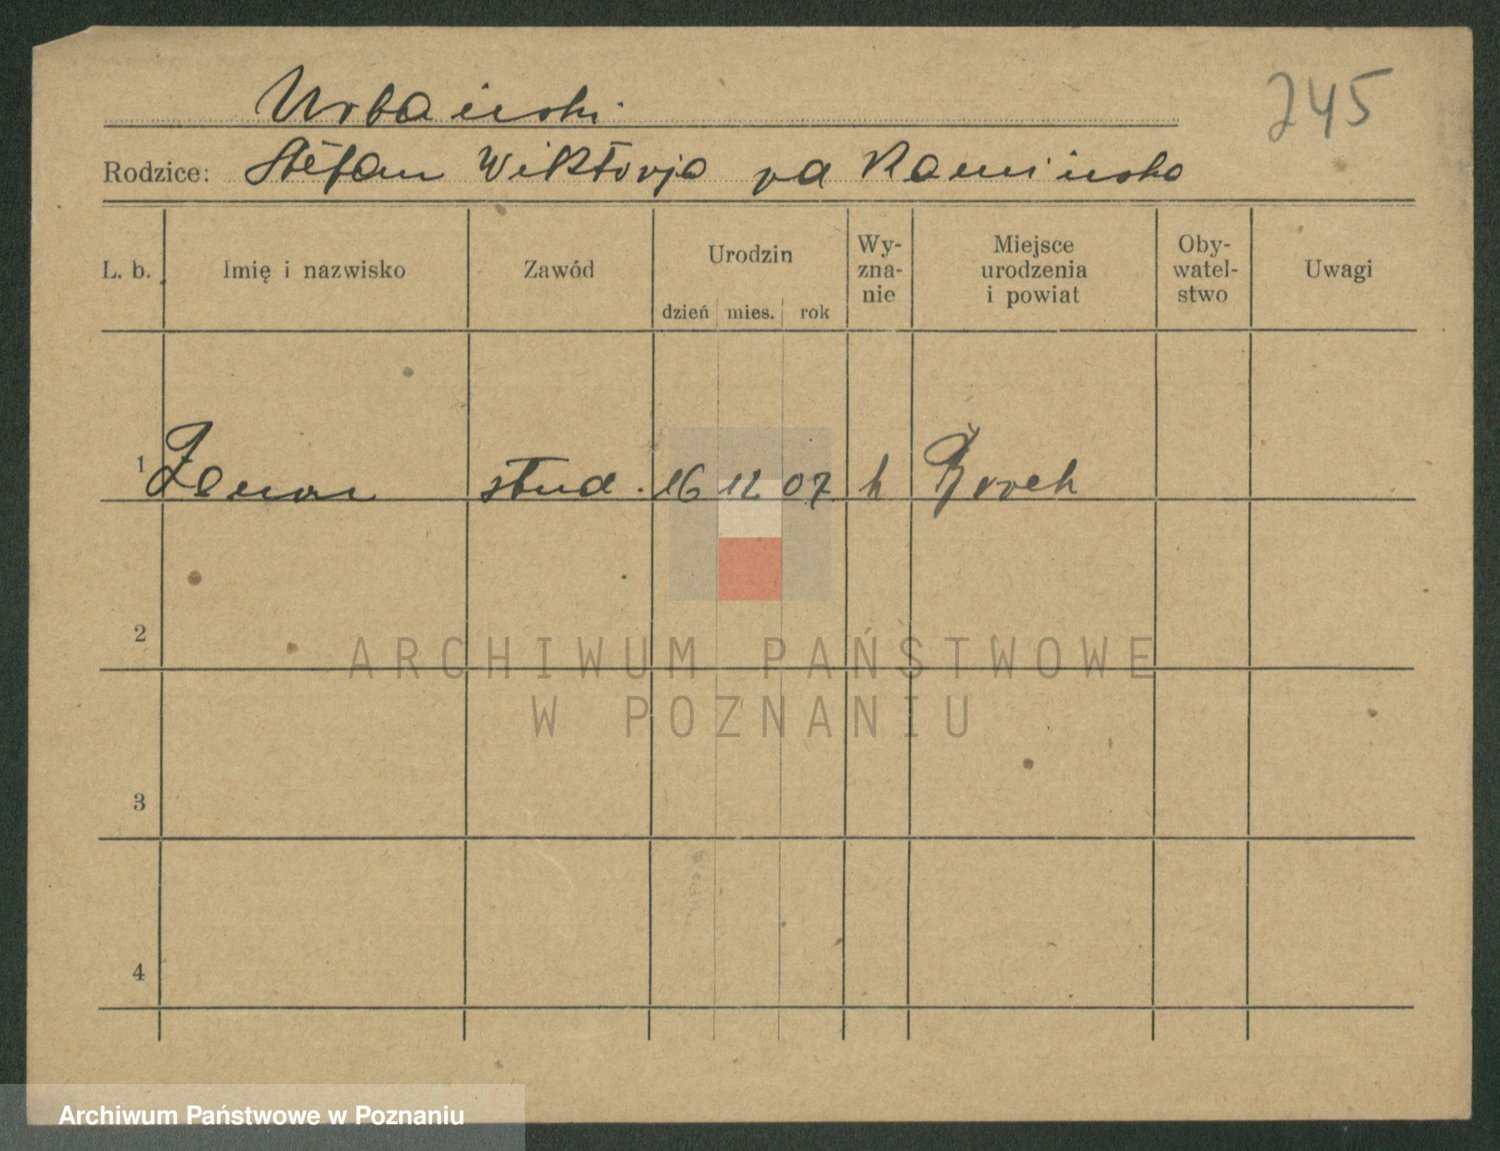 Urbański
245
Rodzice: Stefan Wiktorja zd Kamińska
L. b. Imię i nazwisko Zawód Urodzin dzień mies. rok Wy-zna-nie Miejsce urodzenia i powiat Oby-watel-stwo Uwagi
1 Zenon stud. 16 12 07 k
2
3
4
ARCHIWUM PAŃSTWOWE
W POZNANIU
Archiwum Państwowe w Poznaniu